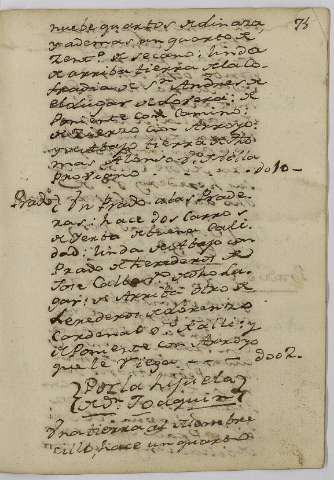 75
nuebe quartos de linaza
y ademas un quarto de
Zent.º de secano: linda
de arriba tierra de la Co-
fradia de S.n Andres de
el lugar de Losera: de
Poniente con Camino:
de Zierzo con Arroyo:
y de Abajo tierra de Tho-
mas Alonso
do10-
Prado
Un Prado a las Prade-
ras: hace dos Carros
de Yerba de buena Cali-
dad: linda de Abajo con
Prado de herederos de
Jose Calbo dho Lu-
gar: de Arriba otro de
herederos de Lorenzo
Cardenal y
de Poniente con Arroyo
que le Riega
do02.
Por la hijuela
de D.n Joaquin
Una tierra al
hace un quarto